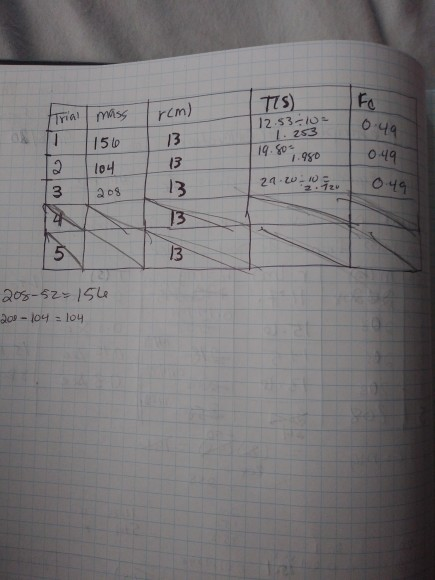 Trial mass r(m) T(s) Fc
1 156 13 12.53÷10= 1.253 0.49
2 104 13 19.80= 1.980 0.49
3 208 13 0.49
4 13
5 13
208-52=156
208-104=104